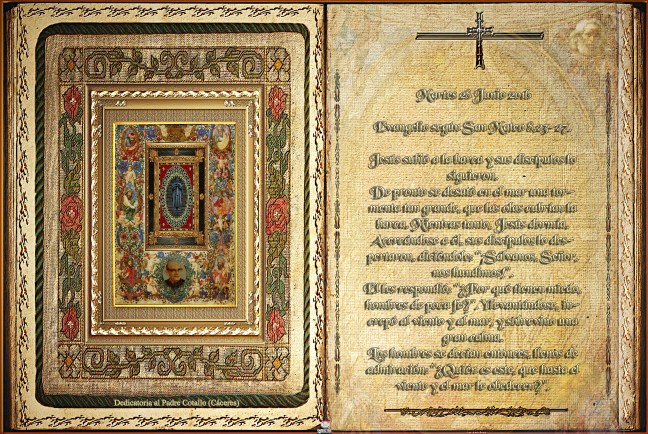 Dedicatoria al Padre Cotallo (Cáceres)
Martes 28 Junio 2016
Evangelio según San Mateo 8,23-27.
Jesús subió a la barca y sus discípulos lo
siguieron.
De pronto se desató en el mar una tor-
menta tan grande, que las olas cubrían la
barca. Mientras tanto, Jesús dormía.
Acercándose a él, sus discípulos lo des-
pertaron, diciéndole: "¡Sálvanos, Señor,
nos hundimos!".
El les respondió: "¿Por qué tienen miedo,
hombres de poca fe?". Y levantándose, in-
crepó al viento y al mar, y sobrevino una
gran calma.
Los hombres se decían entonces, llenos de
admiración: "¿Quién es este, que hasta el
viento y el mar le obedecen?".